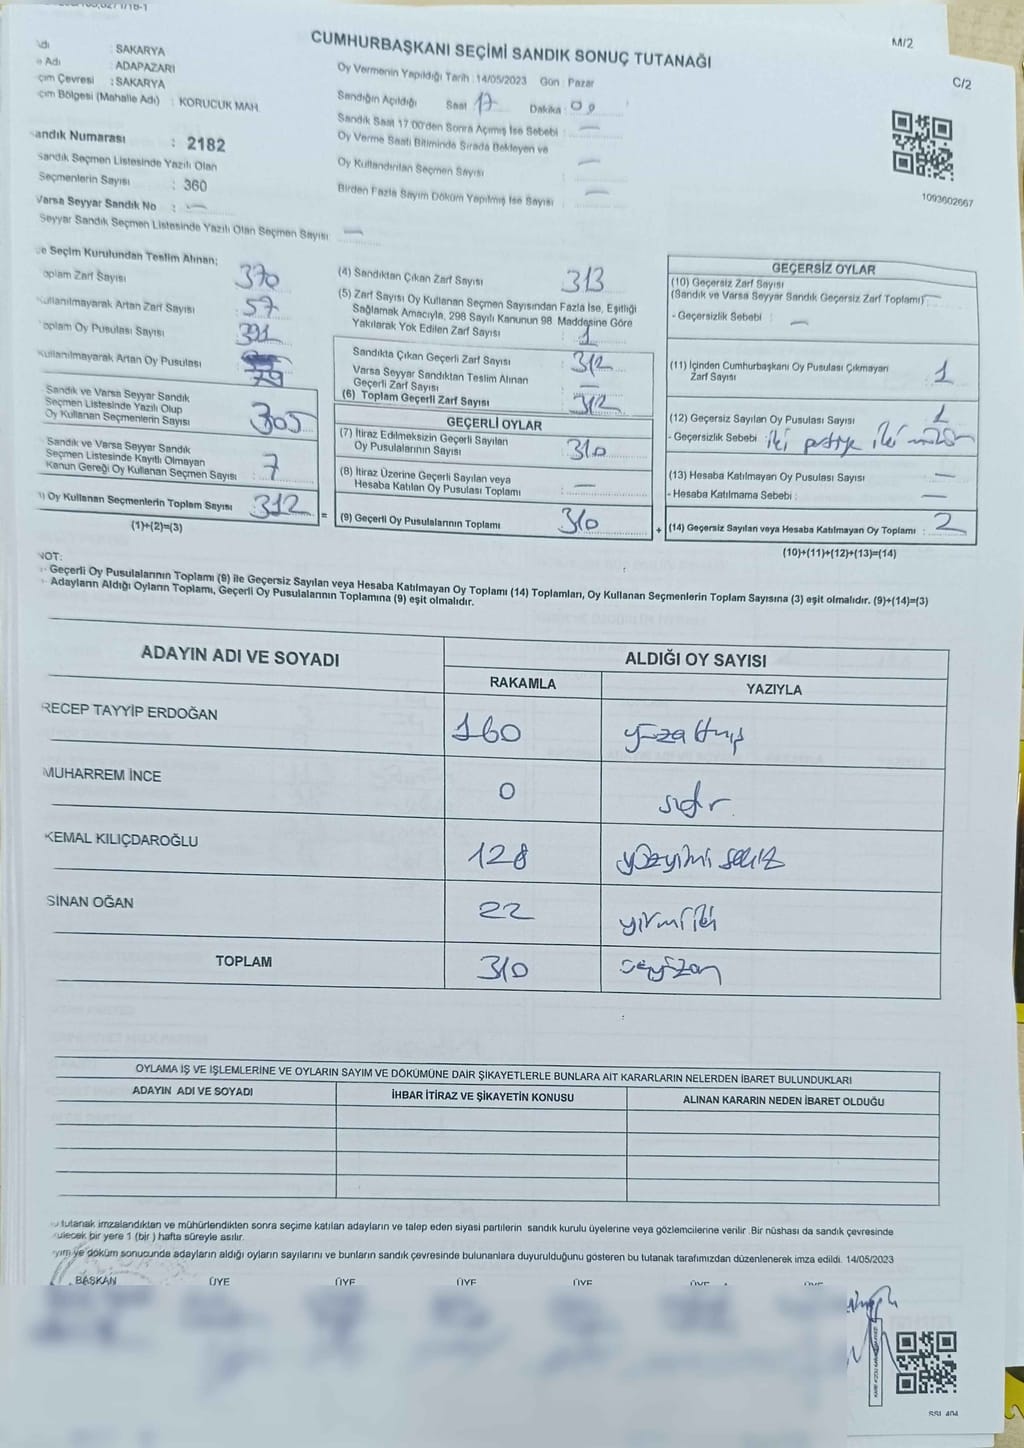 M/2
C/2
CUMHURBAŞKANI SEÇİMİ SANDIK SONUÇ TUTANAĞI
: SAKARYA
Adı : ADAPAZARI
Çevresi : SAKARYA
Bölgesi (Mahalle Adı) : KORUCUK MAH.
Oy Vermenin Yapıldığı Tarih : 14/05/2023 Gün : Pazar
Sandığın Açıldığı Saat 17 Dakika : 09
Sandık Saat 17:00'den Sonra Açımış İse Sebebi : —
Oy Verme Saati Bitiminde Sırada Bekleyen ve
Oy Kullandırılan Seçmen Sayısı : —
Birden Fazla Sayım Döküm Yapılmış İse Sayısı : —
andık Numarası : 2182
Sandık Seçmen Listesinde Yazılı Olan
Seçmenlerin Sayısı : 360
Varsa Seyyar Sandık No : —
Seyyar Sandık Seçmen Listesinde Yazılı Olan Seçmen Sayısı —
1093602667
Seçim Kurulundan Teslim Alınan;
oplam Zarf Sayısı : 370
Kullanılmayarak Artan Zarf Sayısı : 57
Toplam Oy Pusulası Sayısı : 391
Kullanılmayarak Artan Oy Pusulası 79
Sandık ve Varsa Seyyar Sandık
Seçmen Listesinde Yazılı Olup
Oy Kullanan Seçmenlerin Sayısı : 305
Sandık ve Varsa Seyyar Sandık
Seçmen Listesinde Kayıtlı Olmayan
Kanun Gereği Oy Kullanan Seçmen Sayısı : 7
) Oy Kullanan Seçmenlerin Toplam Sayısı : 312 =
(1)+(2)=(3)
(4) Sandıktan Çıkan Zarf Sayısı 313
(5) Zarf Sayısı Oy Kullanan Seçmen Sayısından Fazla İse, Eşitliği
Sağlamak Amacıyla, 298 Sayılı Kanunun 98. Maddesine Göre
Yakılarak Yok Edilen Zarf Sayısı : 1
Sandıkta Çıkan Geçerli Zarf Sayısı : 312
Varsa Seyyar Sandıktan Teslim Alınan
Geçerli Zarf Sayısı : —
(6) Toplam Geçerli Zarf Sayısı : 312
GEÇERLİ OYLAR
(7) İtiraz Edilmeksizin Geçerli Sayılan
Oy Pusulalarının Sayısı : 310
(8) İtiraz Üzerine Geçerli Sayılan veya
Hesaba Katılan Oy Pusulası Toplamı : —
(9) Geçerli Oy Pusulalarının Toplamı : 310 +
GEÇERSİZ OYLAR
(10) Geçersiz Zarf Sayısı
(Sandık ve Varsa Seyyar Sandık Geçersiz Zarf Toplamı) : —
- Geçersizlik Sebebi : —
(11) İçinden Cumhurbaşkanı Oy Pusulası Çıkmayan
Zarf Sayısı : 1
(12) Geçersiz Sayılan Oy Pusulası Sayısı : 1
- Geçersizlik Sebebi : iki partiye iki mühür
(13) Hesaba Katılmayan Oy Pusulası Sayısı : —
- Hesaba Katılmama Sebebi : —
(14) Geçersiz Sayılan veya Hesaba Katılmayan Oy Toplamı : 2
(10)+(11)+(12)+(13)=(14)
NOT:
- Geçerli Oy Pusulalarının Toplamı (9) ile Geçersiz Sayılan veya Hesaba Katılmayan Oy Toplamı (14) Toplamları, Oy Kullanan Seçmenlerin Toplam Sayısına (3) eşit olmalıdır. (9)+(14)=(3)
- Adayların Aldığı Oyların Toplamı, Geçerli Oy Pusulalarının Toplamına (9) eşit olmalıdır.
ADAYIN ADI VE SOYADI
ALDIĞI OY SAYISI
RAKAMLA YAZIYLA
RECEP TAYYİP ERDOĞAN 160 yüzaltmış
MUHARREM İNCE 0 sıfır
KEMAL KILIÇDAROĞLU 128 yüzyirmi sekiz
SİNAN OĞAN 22 yirmi iki
TOPLAM 310 üçyüzon
OYLAMA İŞ VE İŞLEMLERİNE VE OYLARIN SAYIM VE DÖKÜMÜNE DAİR ŞİKAYETLERLE BUNLARA AİT KARARLARIN NELERDEN İBARET BULUNDUKLARI
ADAYIN ADI VE SOYADI İHBAR İTİRAZ VE ŞİKAYETİN KONUSU ALINAN KARARIN NEDEN İBARET OLDUĞU
tutanak imzalandıktan ve mühürlendikten sonra seçime katılan adayların ve talep eden siyasi partilerin sandık kurulu üyelerine veya gözlemcilerine verilir .Bir nüshası da sandık çevresinde
ülecek bir yere 1 (bir ) hafta süreyle asılır.
yım ve döküm sonucunda adayların aldığı oyların sayılarını ve bunların sandık çevresinde bulunanlara duyurulduğunu gösteren bu tutanak tarafımızdan düzenlenerek imza edildi. 14/05/2023
BAŞKAN ÜYE ÜYE ÜYE ÜYE ÜYE